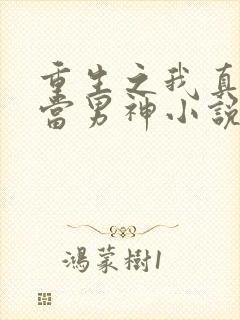 重生之我真
當男神小說
鴻蒙樹1